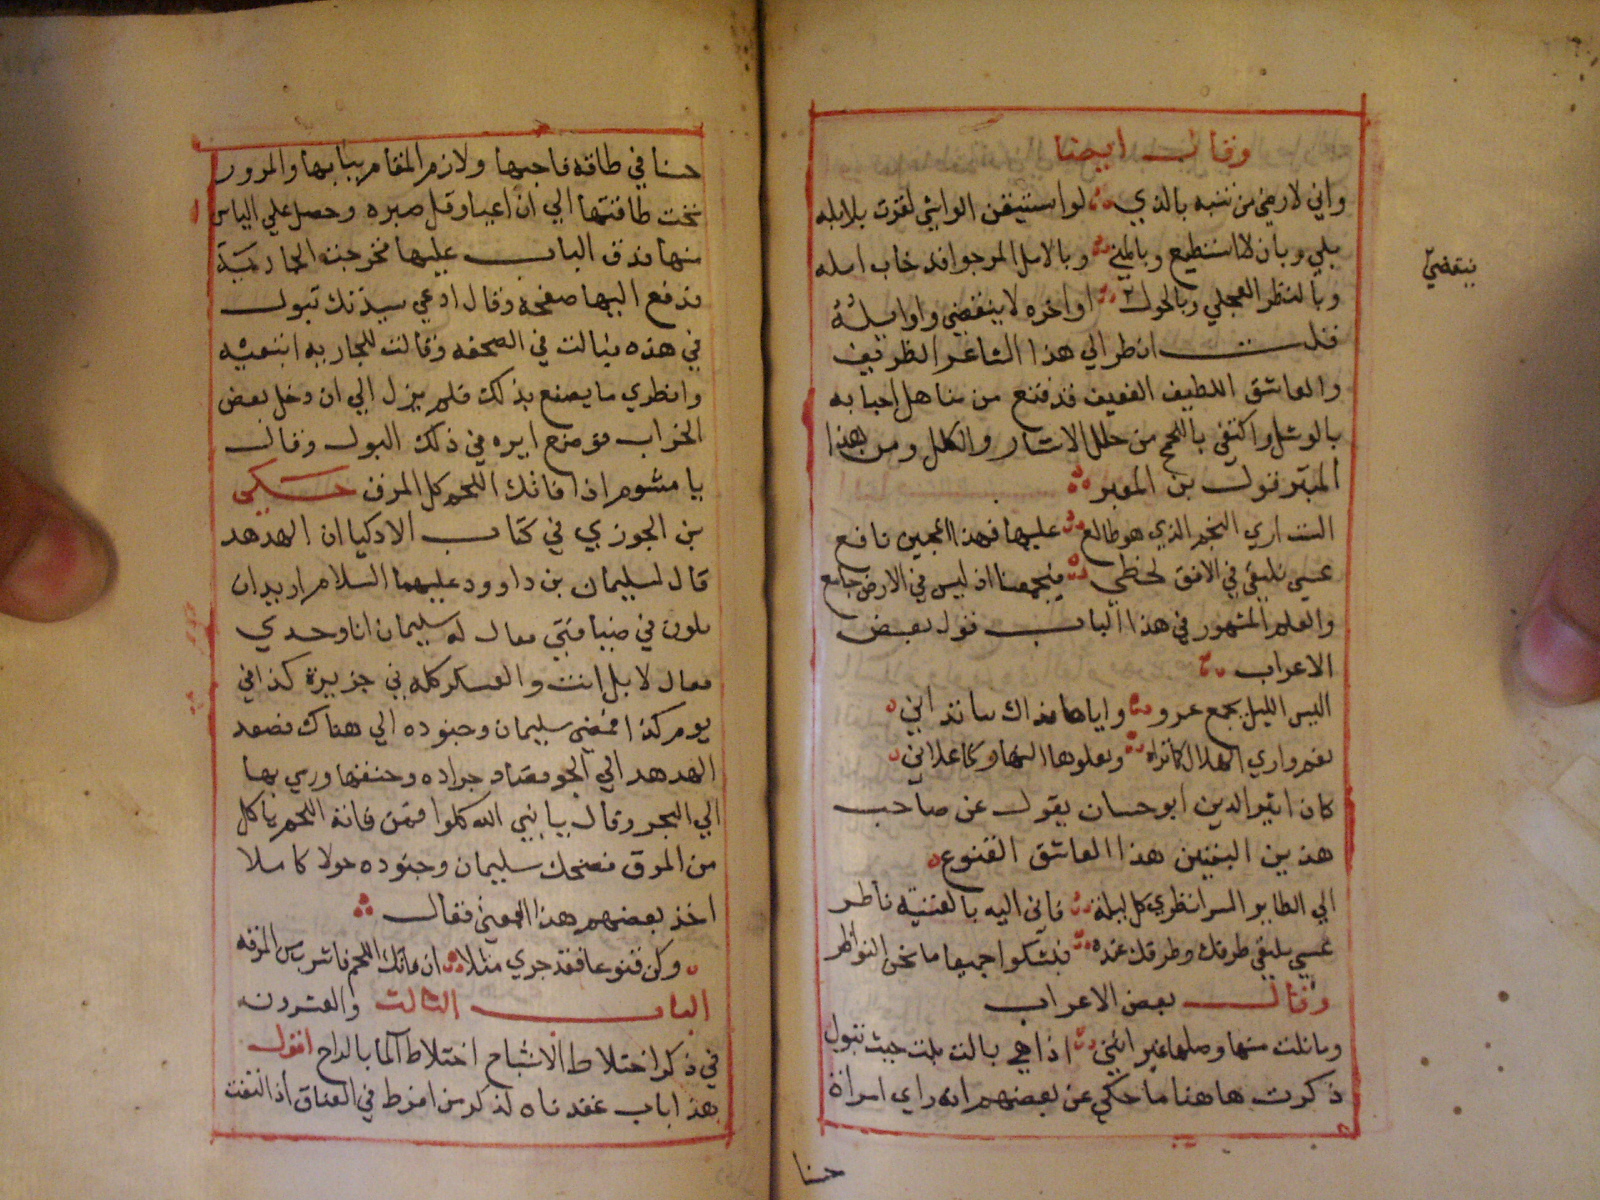 وقال ايضا
واني لارضي من بثينه بالذي لو استيقن الواشي لقرت بلابله
بلي وبان لا استطيع وبالمني وبالامل المرجو اقد خاب امله
وبالنظر العجلي وبالحول اواخره لا ينقضي واوايله
ينقضي
قلت انظر الي هذا الشاعر الظريف
والعاشق اللطيف العفيف قد قنع من مناهل احبابه
بالوشل واكتفي باللمح من خلل الاستار والكلل ومن هذا
قول بن المعبر
الست اري النجم الذي هو طالع عليها فهذا للمحبين نافع
عسي يلتقي في الافق لحظي فيجمعنا اذ ليس في الارض جامع
والعلم المشهور في هذا الباب قول بعض
الاعراب
اليس الليل يجمع عمرو وايانا فذاك بنا تداني
نعم واري الهلال كما تراه ويعلوها النهار كما علاني
كان اثير الدين ابو حسان يقول عن صاحب
هذين البيتين هذا العاشق القنوع
الي الطاير النسر انظري كل ليلة فاني اليه بالعشية ناظر
عسي يلتقي طرفك وطرفك عنده فنشكوا جميعا ما تخن النواظر
وقال بعض الاعراب
وما نلت منها وصلها غير انني اذا هي بالت بلت حيث تبول
ذكرت هاهنا ما حكي عن بعضهم انه راي امراة
حسنا
حسنا في طاقه فاحبها ولازم المقام ببابها والمرور
تحت طاقتها الي ان اعيا وقل صبره وحصل علي الياس
منها فدق الباب عليها فخرجت الجاريه
فدفع اليها صفحه وقال ادعي سيدتك تبول
في هذه فبالت في الصحفه وقالت للجاريه اتبعيه
وانظري ما يصنع بذلك فلم يزل الي ان دخل بعض
الخراب فوضع ايره في ذلك البول وقال
يا مشوم اذا فاتك اللحم كل المرق حكي
بن الجوزي في كتاب الادكيا ان الهدهد
قال لسليمان بن داوود عليهما السلام اريد ان
تكون في ضيافتي فقال له سليمان انا وحدي
فقال لا بل انت والعسكر كله في جزيرة كذا في
يوم كذا فمضي سليمان وجنوده الي هناك فصعد
الهدهد الي الجو فصاد جراده وخنقها ورمي بها
الي البحر وقال يا نبي الله كلوا فمن فاته اللحم ياكل
من المرق فضحك سليمان وجنوده حولا كاملا
اخذ بعضهم هذا المعني فقال
وكن قنوعا فقد جري مثلا ان فاتك اللحم فاشرب من المرقه
الباب الثالث والعشرون
في ذكر اختلاط الاشباح اختلاط الما بالراح اقول
هذا باب عقدناه لذكر من افرط في العناق اذ التفت